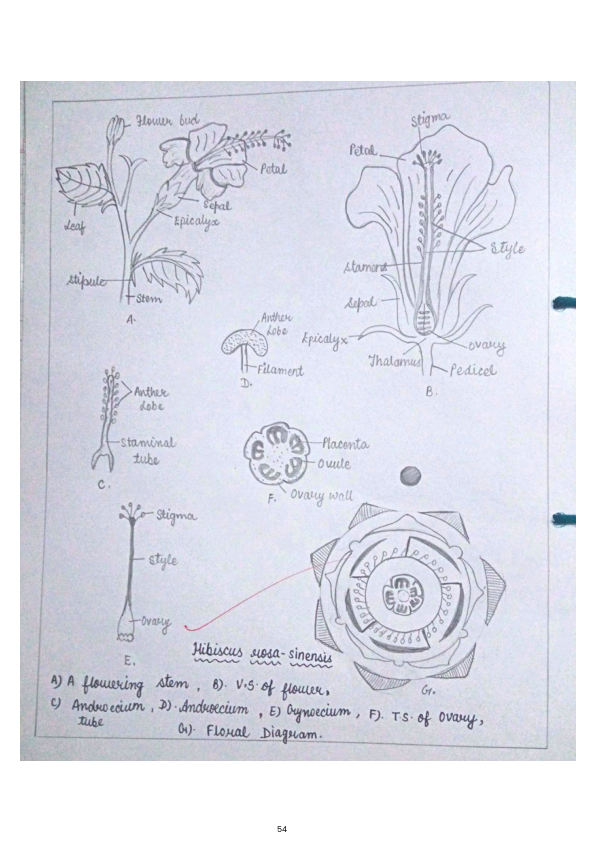 Flower bud
Petal
Sepal
Epicalyx
Leaf
Stipule
Stem
A.
Stigma
Petal
Style
Stamens
Sepal
Epicalyx
Ovary
Thalamus
Pedicel
B.
Anther
Lobe
Filament
D.
Anther
Lobe
Staminal
tube
C.
Placenta
Ovule
Ovary wall
F.
Stigma
Style
Ovary
E.
G.
Hibiscus rosa-sinensis
A) A flowering stem, B). V.S. of flower,
C) Androecium, D). Androecium, E) Gynoecium, F). T.S. of Ovary,
tube
G). Floral Diagram.
54